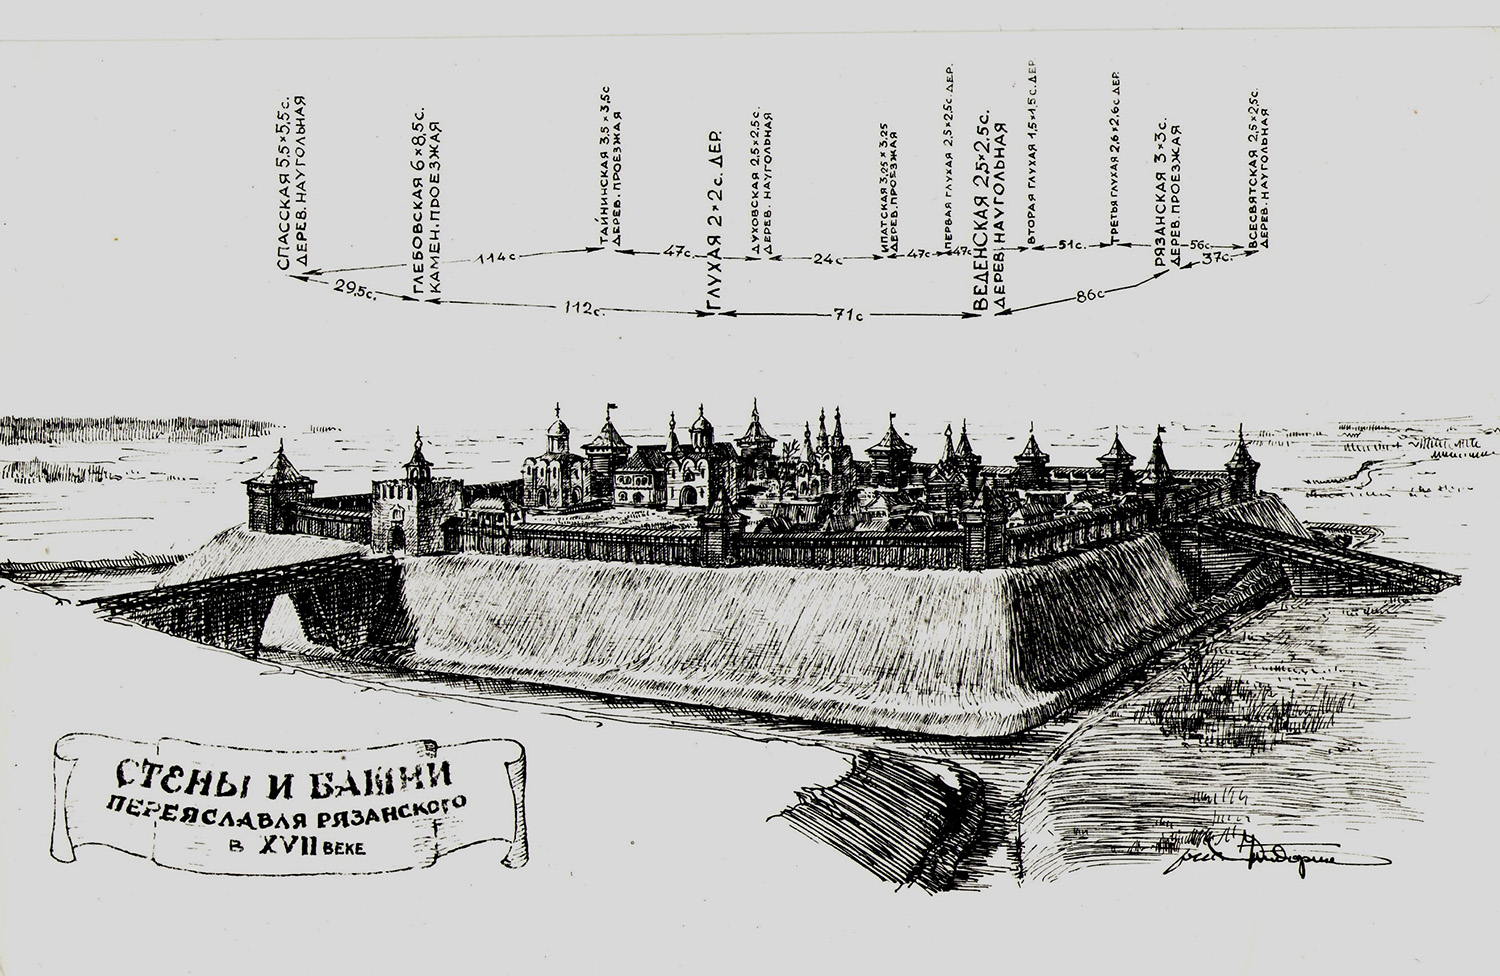 СПАССКАЯ 5,5×5,5с.
ДЕРЕВ. НАУГОЛЬНАЯ
ГЛЕБОВСКАЯ 6×8,5с.
КАМЕН. ПРОЕЗЖАЯ
ТАЙНИНСКАЯ 3,5×3,5с
ДЕРЕВ. ПРОЕЗЖАЯ
ГЛУХАЯ 2×2с. ДЕР.
ДУХОВСКАЯ 2,5×2,5с.
ДЕРЕВ. НАУГОЛЬНАЯ
ИПАТСКАЯ 3,25×3,25
ДЕРЕВ. ПРОЕЗЖАЯ
ПЕРВАЯ ГЛУХАЯ 2,5×2,5с. ДЕР.
ВЕДЕНСКАЯ 2,5×2,5с.
ДЕРЕВ. НАУГОЛЬНАЯ
ВТОРАЯ ГЛУХАЯ 1,5×1,5с. ДЕР
ТРЕТЬЯ ГЛУХАЯ 2,6×2,6с ДЕР.
РЯЗАНСКАЯ 3×3с.
ДЕРЕВ. ПРОЕЗЖАЯ
ВСЕСВЯТСКАЯ 2,5×2,5с.
ДЕРЕВ. НАУГОЛЬНАЯ
114с
47с.
24с
47с
47с
51с.
56с
37с.
29,5с.
112с.
71с
86с
СТЕНЫ И БАШНИ
ПЕРЕЯСЛАВЛЯ РЯЗАНСКОГО
В XVII ВЕКЕ